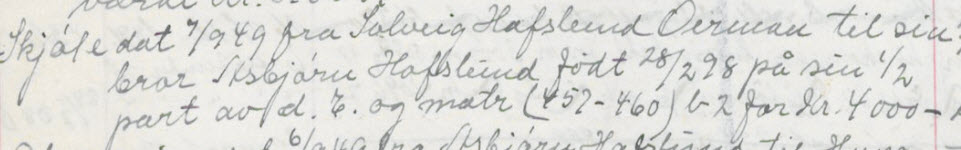 Skjøte dat 7/9 49 fra Solveig Hafslund Oerman til sin
bror Asbjørn Hafslund født 28/2 98 på sin 1/2
part av d. E. og matr (457-460) b-2 for Kr. 4000-
6/9 49 fra Asbjørn Hafslund til